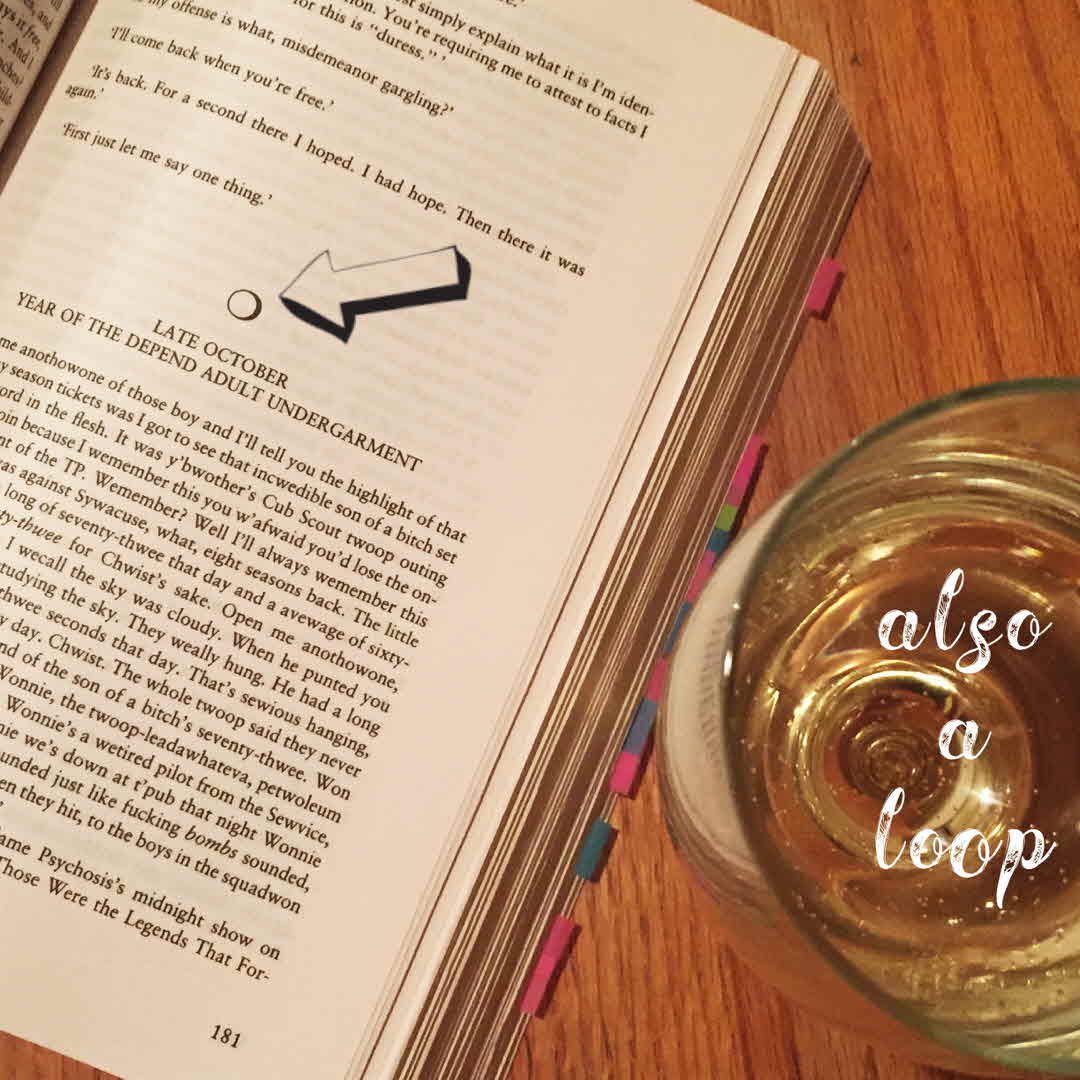 ys it free,
And I
nches!
ild.
st simply explain what it is I'm iden-
tion. You're requiring me to attest to facts I
for this is "duress." '
my offense is what, misdemeanor gargling?'
'I'll come back when you're free.'
'It's back. For a second there I hoped. I had hope. Then there it was
again.'
'First just let me say one thing.'
LATE OCTOBER
YEAR OF THE DEPEND ADULT UNDERGARMENT
me anothowone of those boy and I'll tell you the highlight of that
y season tickets was I got to see that incwedible son of a bitch set
ord in the flesh. It was y'bwother's Cub Scout twoop outing
oin because I wemember this you w'afwaid you'd lose the on-
nt of the TP. Wemember? Well I'll always wemember this
as against Sywacuse, what, eight seasons back. The little
long of seventy-thwee that day and a avewage of sixty-
ty-thwee for Chwist's sake. Open me anothowone,
I wecall the sky was cloudy. When he punted you
tudying the sky. They weally hung. He had a long
thwee seconds that day. That's sewious hanging,
y day. Chwist. The whole twoop said they never
nd of the son of a bitch's seventy-thwee. Won
Wonnie, the twoop-leadawhateva, petwoleum
Wonnie's a wetired pilot from the Sewvice,
nie we's down at t'pub that night Wonnie
ounded just like fucking bombs sounded,
en they hit, to the boys in the squadwon
ame Psychosis's midnight show on
Those Were the Legends That For-
181
also
a
loop